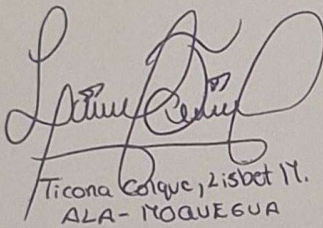 Ticona Colque, Lisbet M.
ALA - MOQUEGUA